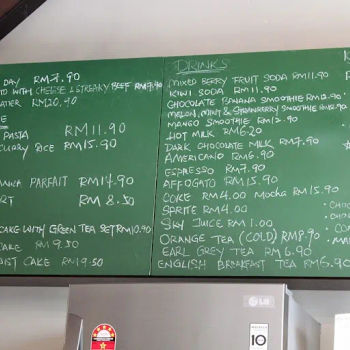 DAY RM7.90
WITH CHEESE & STREAKY BEEF RM7.90
RM20.90
PASTA RM11.90
RICE RM15.90
PARFAIT RM14.90
RM 8.50
CAKE WITH GREEN TEA SET RM10.90
CAKE RM 9.50
CAKE RM9.50
DRINKS
MIXED BERRY FRUIT SODA RM11.90
KIWI SODA RM11.90
CHOCOLATE BANANA SMOOTHIE RM12.90
MELON, MINT & STRAWBERRY SMOOTHIE RM12.90
MANGO SMOOTHIE RM12.90
HOT MILK RM6.20
DARK CHOCOLATE MILK RM7.90
AMERICANO RM6.90
ESPRESSO RM7.90
AFFOGATO RM15.90
COKE RM4.00 MOCHA RM15.90
SPRITE RM4.00
SKY JUICE RM1.00
ORANGE TEA (COLD) RM8.90
EARL GREY TEA RM6.90
ENGLISH BREAKFAST TEA RM6.90
LG
10